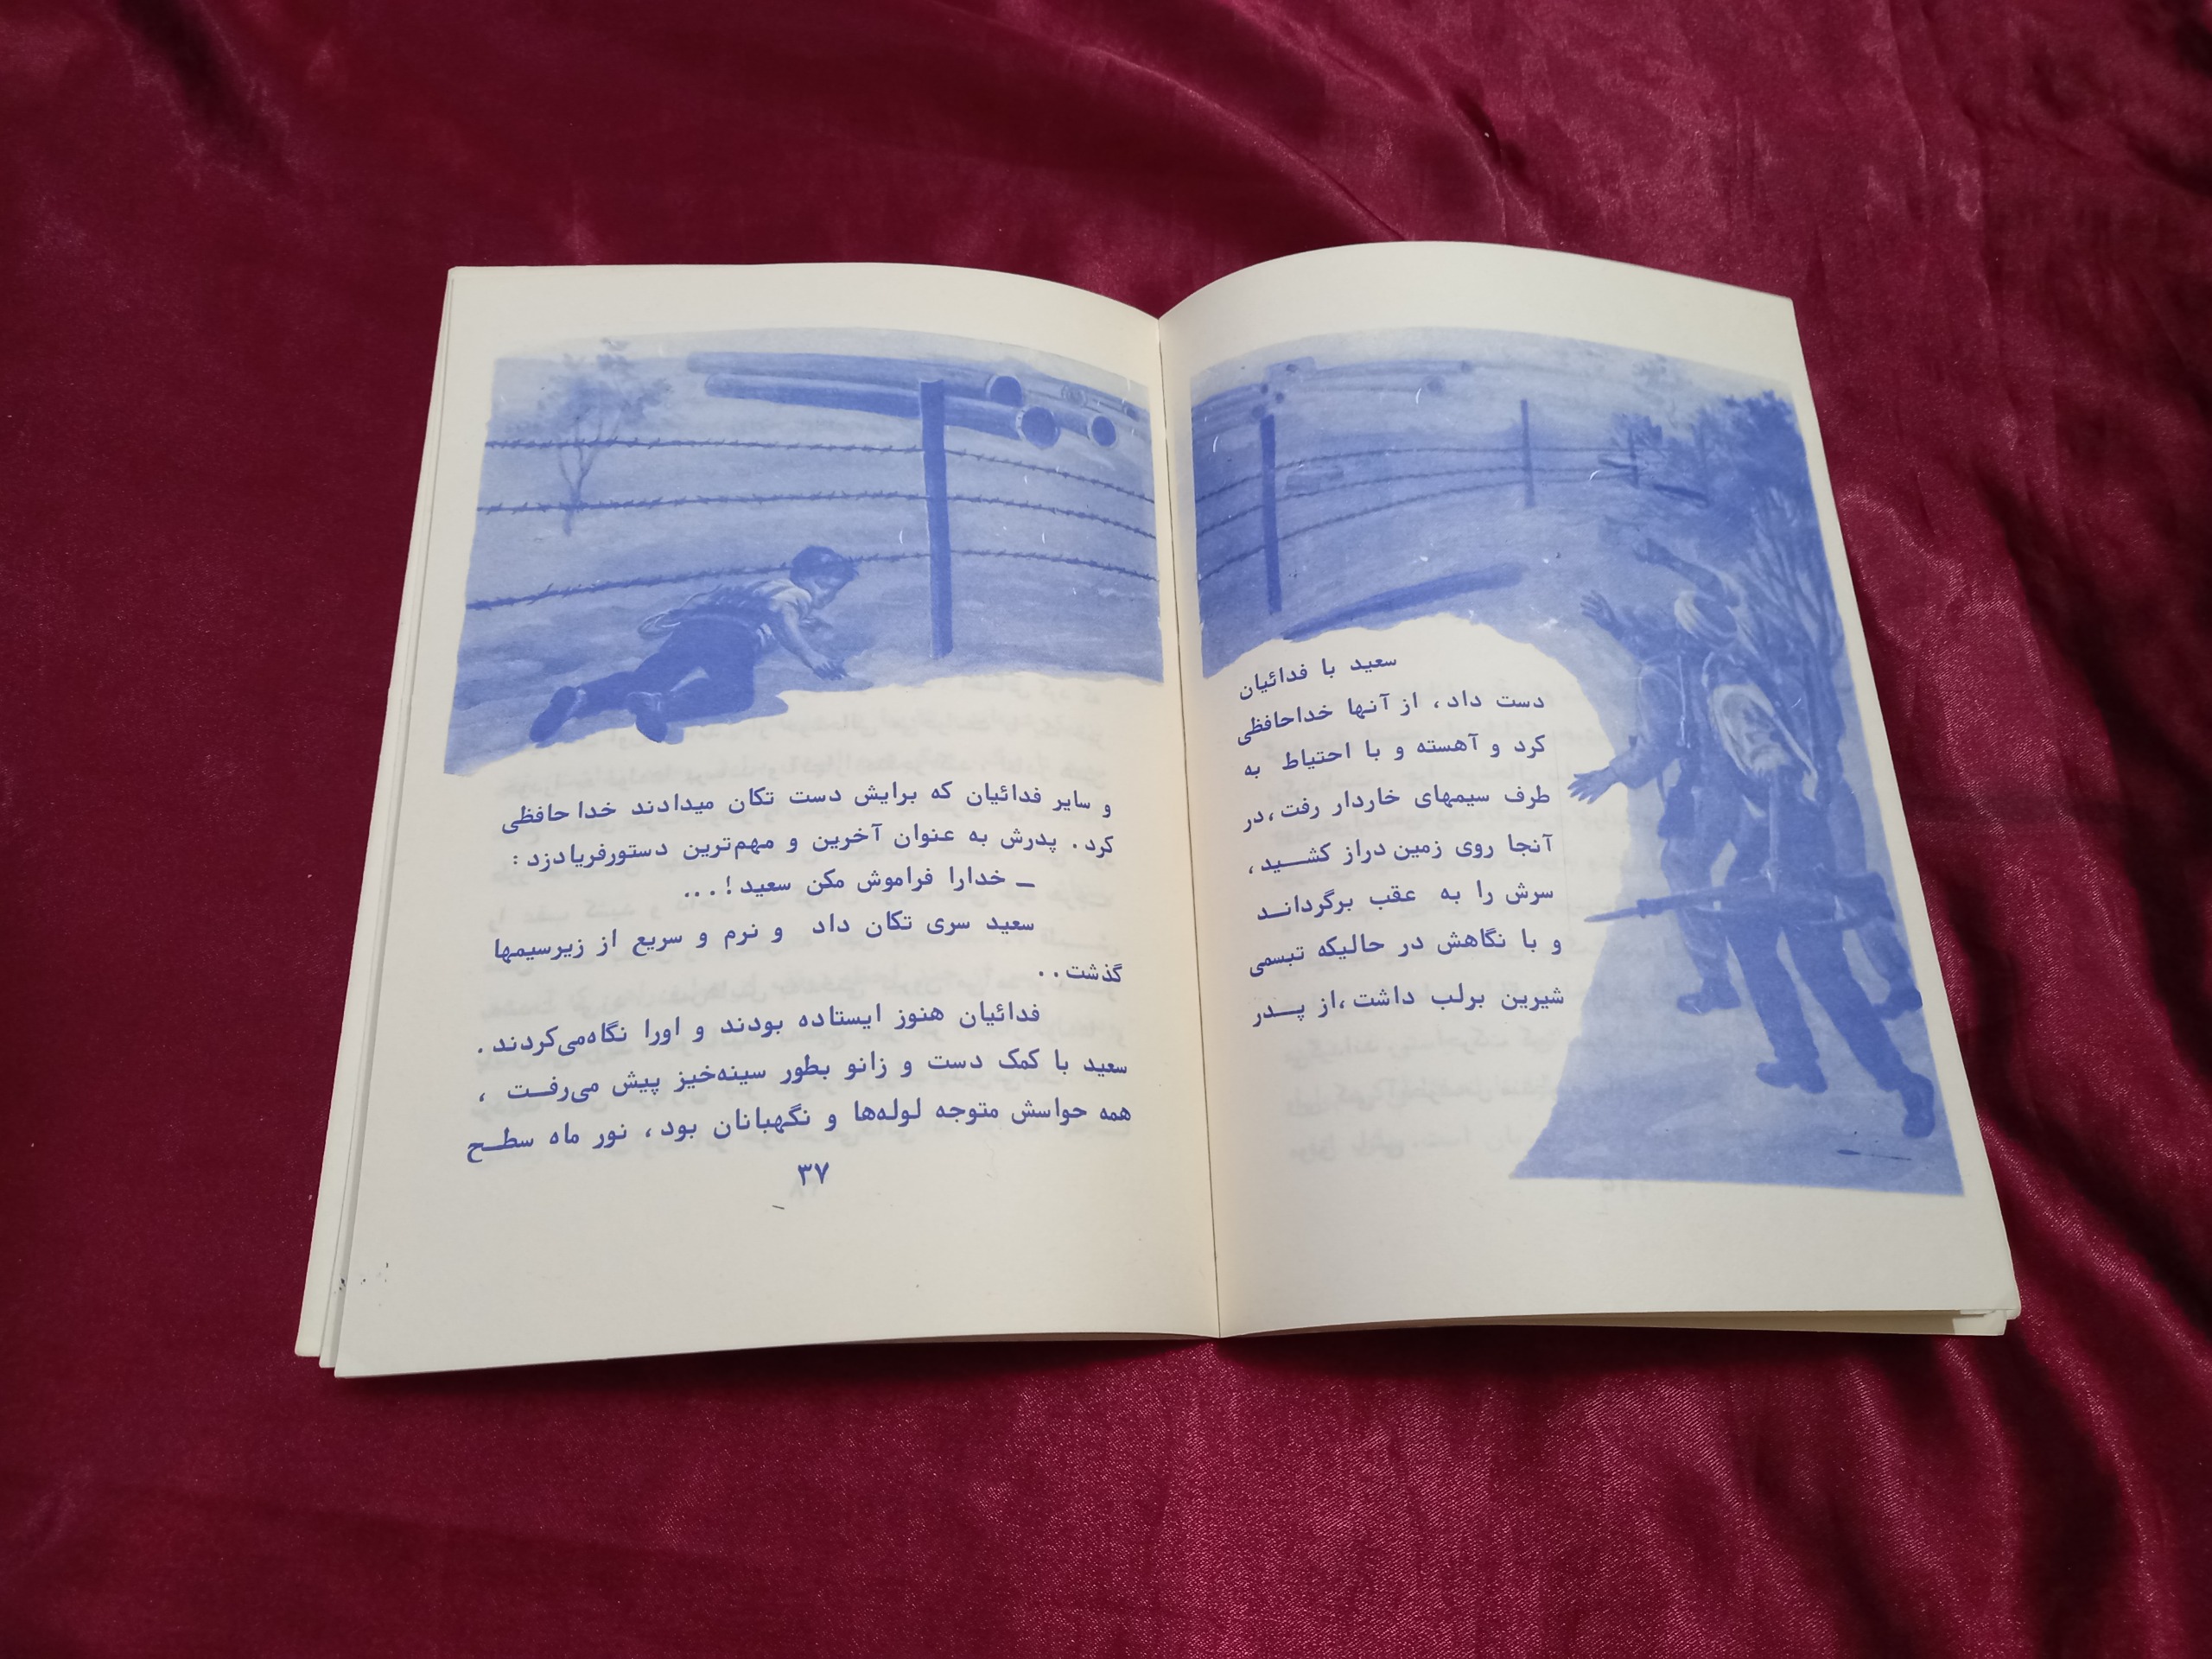 سعید با فدائیان
دست داد، از آنها خداحافظی
کرد و آهسته و با احتیاط به
طرف سیمهای خاردار رفت، در
آنجا روی زمین دراز کشـــید،
سرش را به عقب برگردانــد
و با نگاهش در حالیکه تبسمی
شیرین برلب داشت، از پـــدر
و سایر فدائیان که برایش دست تکان میدادند خداحافظی
کرد. پدرش به عنوان آخرین و مهم‌ترین دستورفریادزد :
ــ خدارا فراموش مکن سعید !...
سعید سری تکان داد و نرم و سریع از زیرسیمها
گذشت..
فدائیان هنوز ایستاده بودند و اورا نگاه‌می‌کردند.
سعید با کمک دست و زانو بطور سینه‌خیز پیش می‌رفــت ،
همه حواسش متوجه لوله‌ها و نگهبانان بود، نور ماه سطــح
۳۷